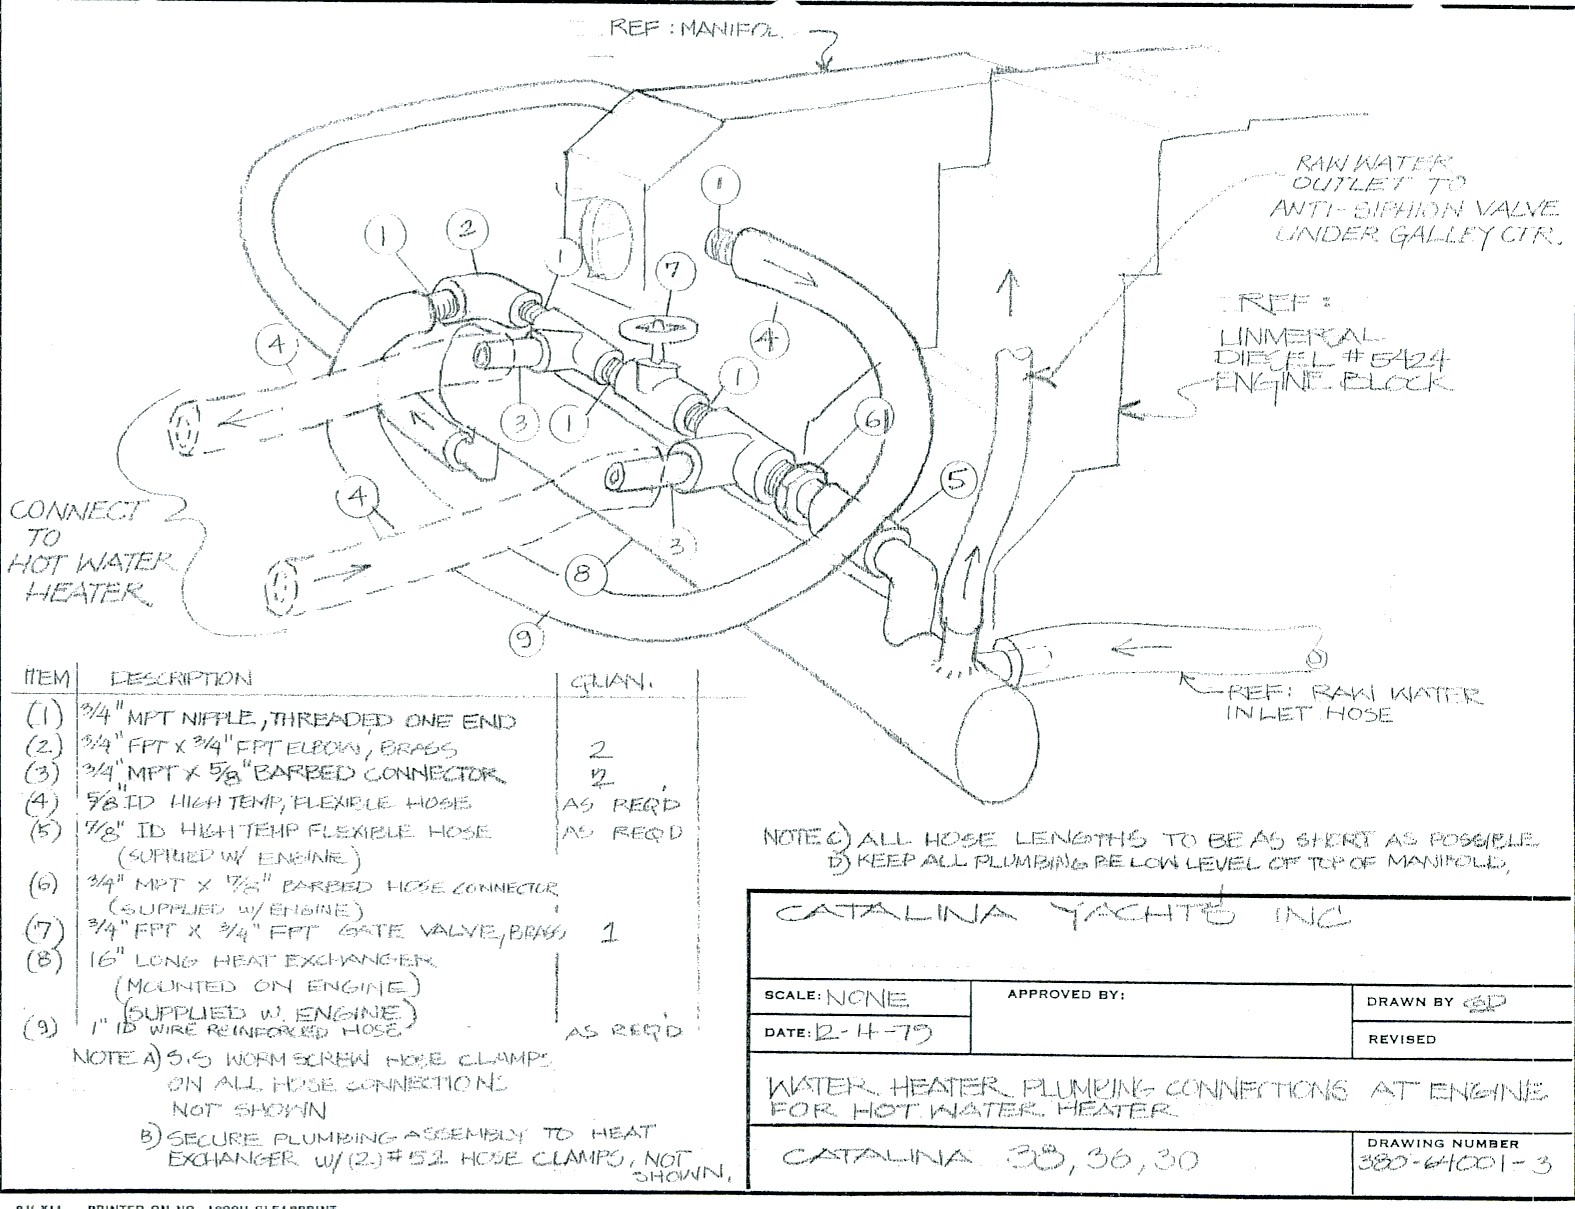 REF : MANIFOL.
RAW WATER
OUTLET TO
ANTI-SIPHION VALVE
UNDER GALLEY CTR.
REF :
UNIVERCAL
DIECEL # 5424
ENGINE BLOCK
1
2
1
1
7
4
4
1
3
1
6
5
4
3
8
9
CONNECT
TO
HOT WATER
HEATER
REF: RAW WATER
INLET HOSE
ITEM DESCRIPTION QUAN.
(1) 3/4" MPT NIPPLE, THREADED ONE END
(2) 3/4" FPT X 3/4" FPT ELBOW, BRASS 2
(3) 3/4" MPT X 5/8" BARBED CONNECTOR 2
(4) 5/8" ID HIGH TEMP, FLEXIBLE HOSE AS REQ'D
(5) 7/8" ID HIGH TEMP FLEXIBLE HOSE AS REQ'D
(SUPPLIED W/ ENGINE)
(6) 3/4" MPT X 7/8" BARBED HOSE CONNECTOR
(SUPPLIED W/ ENGINE)
(7) 3/4" FPT X 3/4" FPT GATE VALVE, BRASS 1
(8) 16" LONG HEAT EXCHANGER
(MOUNTED ON ENGINE)
(SUPPLIED W. ENGINE)
(9) 1" ID WIRE REINFORCED HOSE AS REQ'D
NOTE A) S.S WORM SCREW HOSE CLAMPS
ON ALL HOSE CONNECTIONS
NOT SHOWN
B) SECURE PLUMBING ASSEMBLY TO HEAT
EXCHANGER W/ (2) # 52 HOSE CLAMPS, NOT
SHOWN.
NOTE C) ALL HOSE LENGTHS TO BE AS SHORT AS POSSIBLE
D) KEEP ALL PLUMBING BELOW LEVEL OF TOP OF MANIFOLD.
CATALINA YACHTS INC
SCALE: NONE
APPROVED BY:
DRAWN BY GD
DATE: 12-4-79
REVISED
WATER HEATER PLUMBING CONNECTIONS AT ENGINE
FOR HOT WATER HEATER
CATALINA 38, 36, 30
DRAWING NUMBER
380-64001-3
PRINTED ON NO. 1000H CLEARPRINT